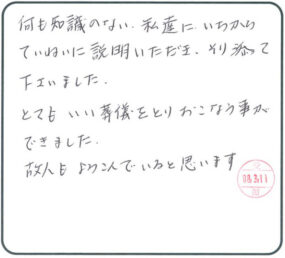 何も知識のない、私達に いちから
ていねいに説明いただき、より添って
下さいました。
とても いい葬儀をとりおこなう事が
できました。
故人も よろこんでいると思います